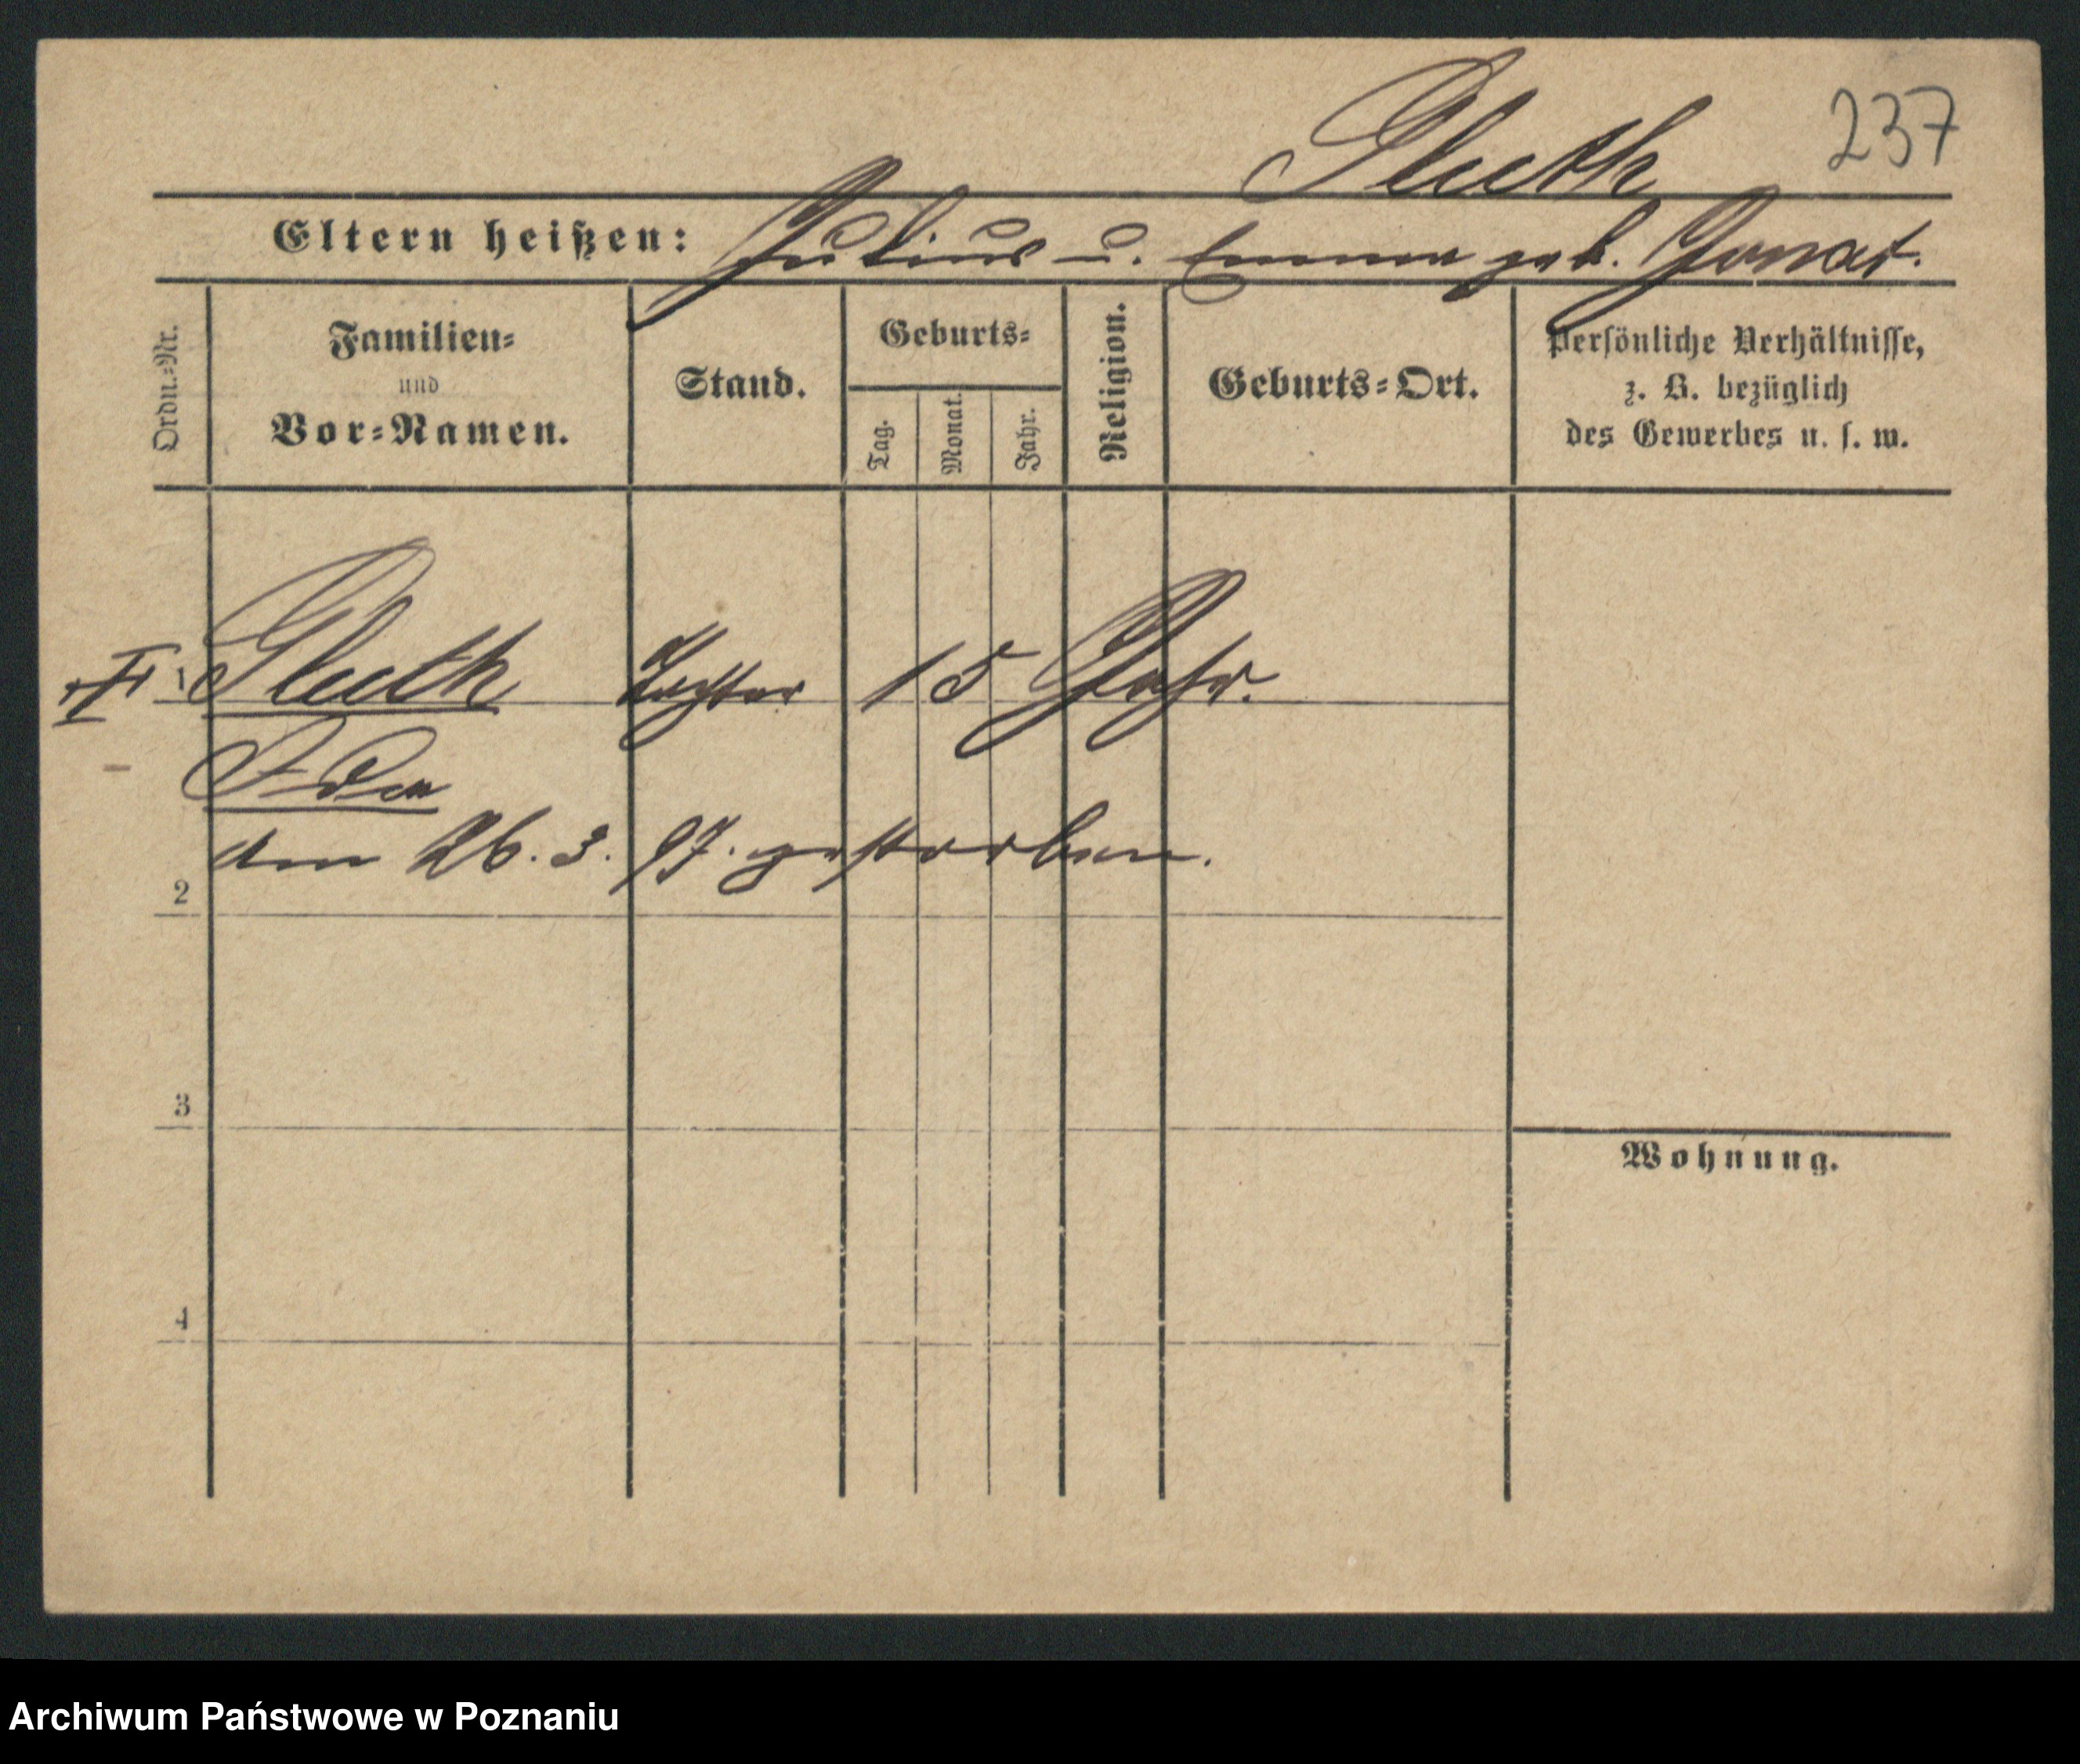 237
Gluth
Eltern heißen: Julius u. Emma geb. Jonat.
Ordn.-Nr.
Familien-
und
Vor-Namen.
Stand.
Geburts-
Tag.
Monat.
Jahr.
Religion.
Geburts-Ort.
Persönliche Verhältnisse,
z. B. bezüglich
des Gewerbes u. s. w.
1 Gluth Tochter 15 Jahr.
Ida
am 26. 3. 97. gestorben.
2
3
Wohnung.
4
Archiwum Państwowe w Poznaniu